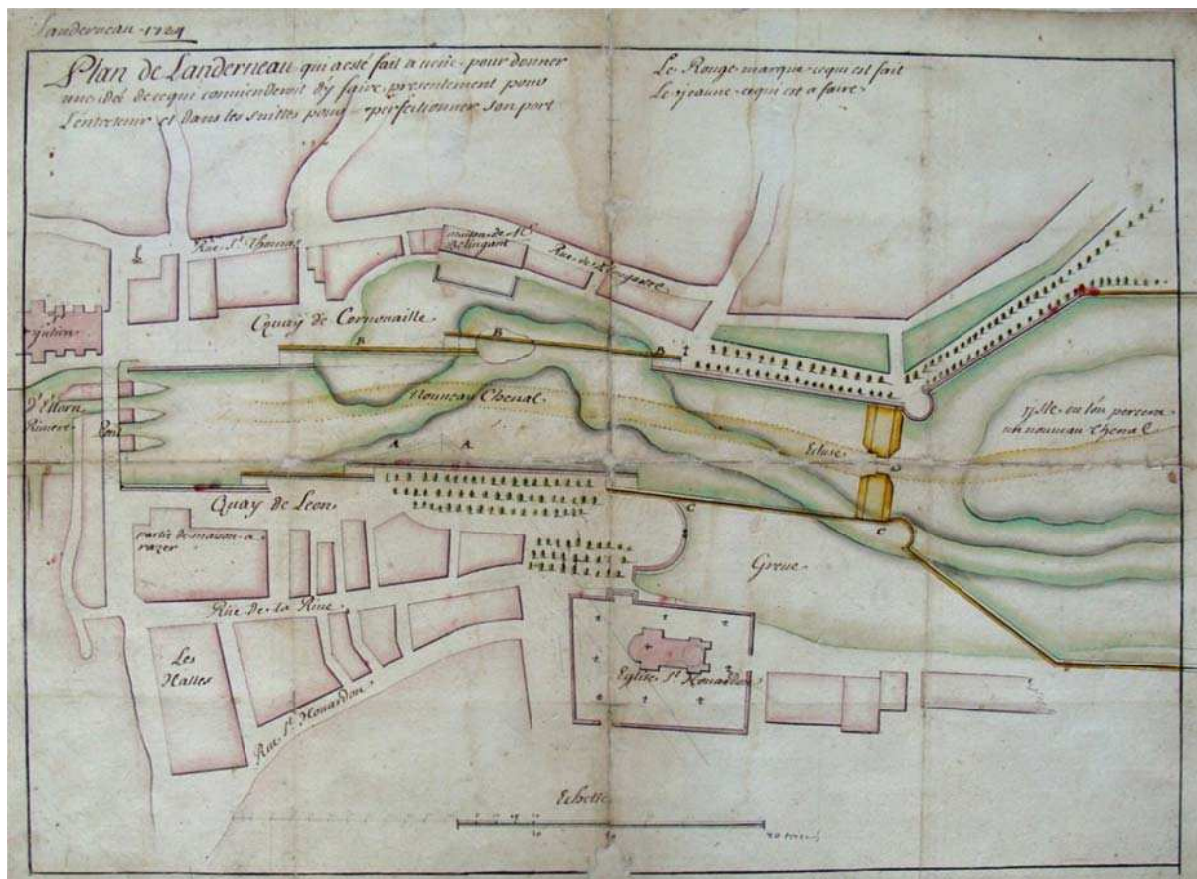 Landerneau 1724
Plan de Landerneau qui a esté fait a veüe pour donner
une idéé de ce qui conviendroit d'y faire presentement pour
l'entretenir et dans les suittes pour perfectionner son port
Le Rouge marque ce qui est fait
Le yeaune ce qui est a faire.
Rüe St. Thomas
maison de Mr
Rue de
Quay de Cornouaille
B
B
B
St
julien
D'Ellorn
Riviere
Pont
Nouveau Chenal
A
A
Ecluse
D
ysle ou l'on percera
un nouveau Chenal
Quay de Leon
C
C
partie de maison a
razer
Greve
Rüe de la Rive
Les
Halles
Rüe St. Houardon
Eglise St. Houardon
Echelle
10
20 toises